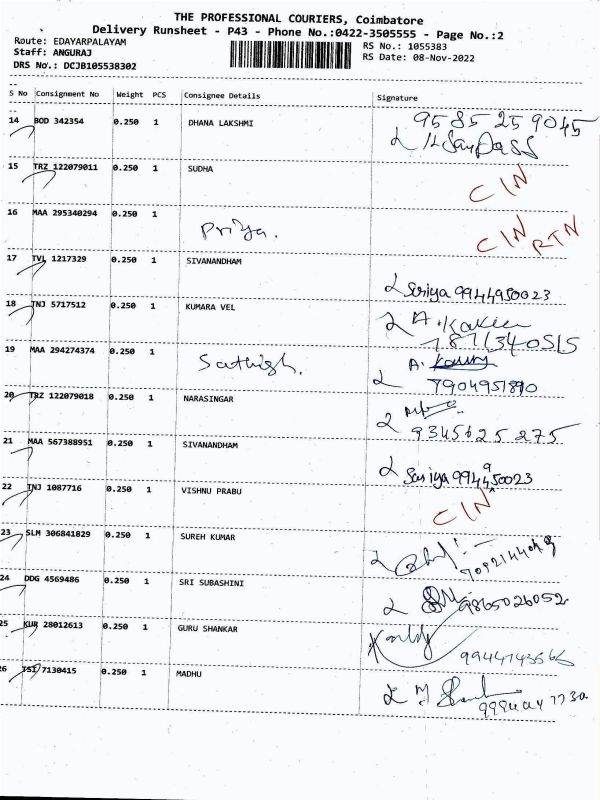 THE PROFESSIONAL COURIERS, Coimbatore
Delivery Runsheet - P43 - Phone No.:0422-3505555 - Page No.:2
Route: EDAYARPALAYAM RS No.: 1055383
Staff: ANGURAJ RS Date: 08-Nov-2022
DRS No.: DCJB105538302
S No Consignment No Weight PCS Consignee Details Signature
14 BOD 342354 0.250 1 DHANA LAKSHMI 9585259045
15 TRZ 122079011 0.250 1 SUDHA CIN
16 MAA 295340294 0.250 1 Priya. CIN RTN
17 TVL 1217329 0.250 1 SIVANANDHAM Suriya 9944950023
18 TNJ 5717512 0.250 1 KUMARA VEL 7871340515
19 MAA 294274374 0.250 1 Sathish. A. 7904951890
20 TRZ 122079018 0.250 1 NARASINGAR 9345625275
21 MAA 567388951 0.250 1 SIVANANDHAM Suriya
22 TNJ 1087716 0.250 1 VISHNU PRABU CIN
23 SLM 306841829 0.250 1 SUREH KUMAR
24 DDG 4569486 0.250 1 SRI SUBASHINI 9865026052
25 KUR 28012613 0.250 1 GURU SHANKAR
26 TSI 7130415 0.250 1 MADHU